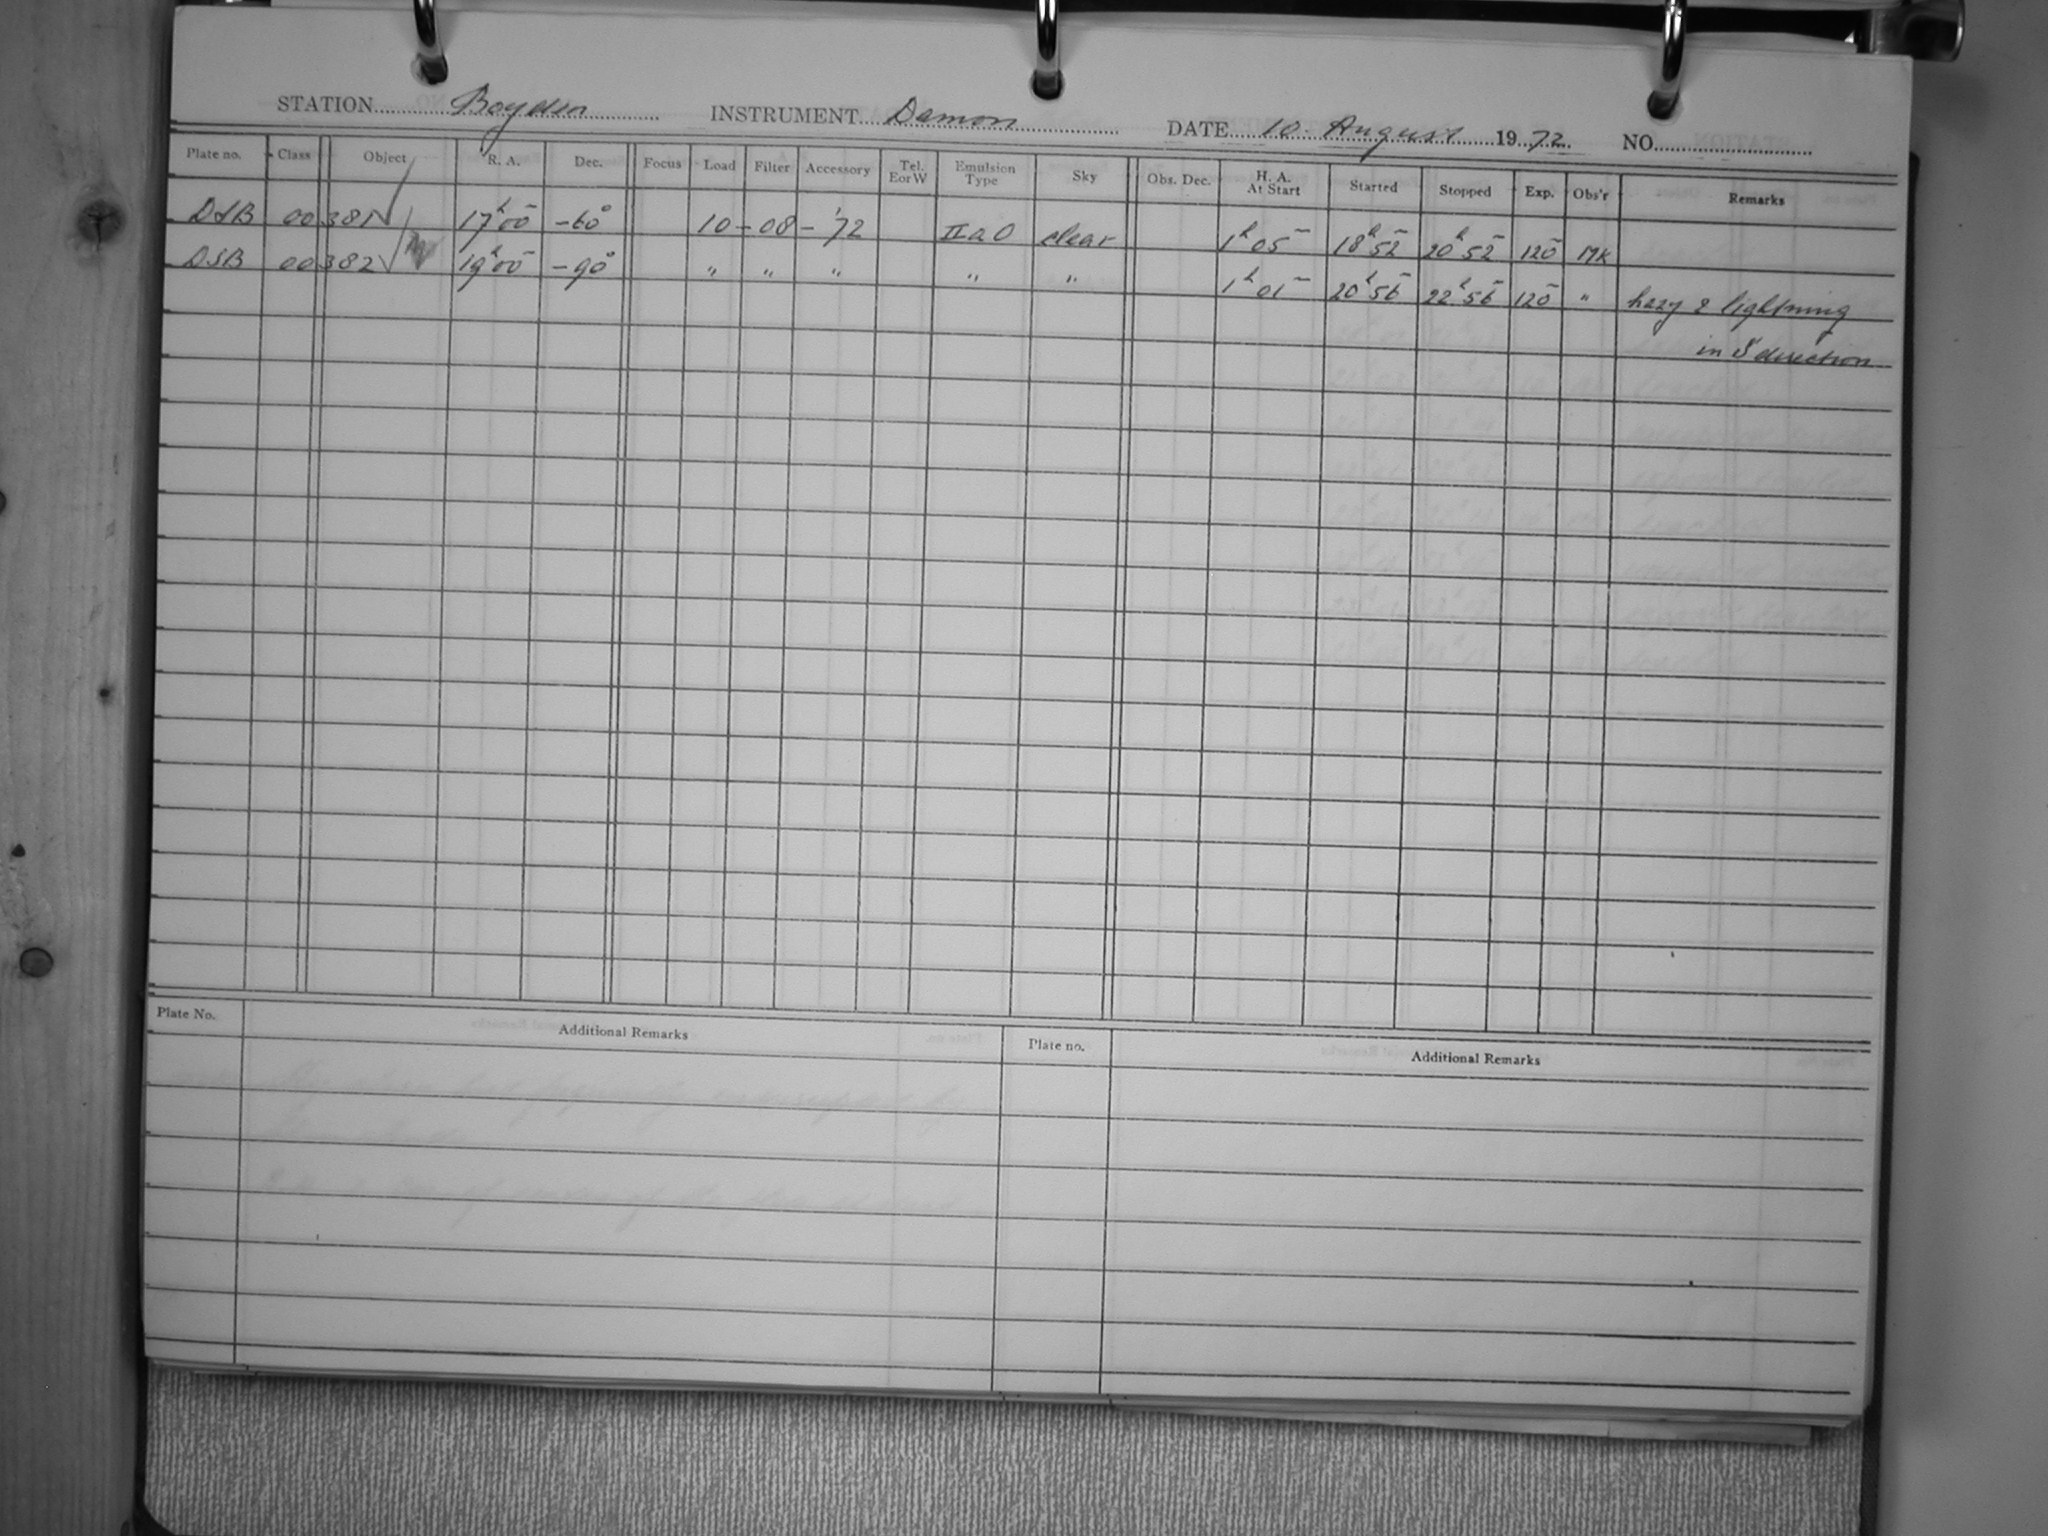 STATION Boyden INSTRUMENT Damon DATE 10 August 1972 NO.
Plate no. Class Object R. A. Dec. Focus Load Filter Accessory Tel. E or W Emulsion Type Sky Obs. Dec. H. A. At Start Started Stopped Exp. Obs'r Remarks
DSB 00381 ✓ 17ʰ00ᵐ -60° 10-08-'72 IIaO clear 1ʰ05ᵐ 18ʰ52ᵐ 20ʰ52ᵐ 120ᵐ MK
DSB 00382 ✓ 19ʰ00ᵐ -90° " " " " " 1ʰ01ᵐ 20ʰ56ᵐ 22ʰ56ᵐ 120ᵐ " hazy & lightning
in S direction
Plate No. Additional Remarks Plate no. Additional Remarks